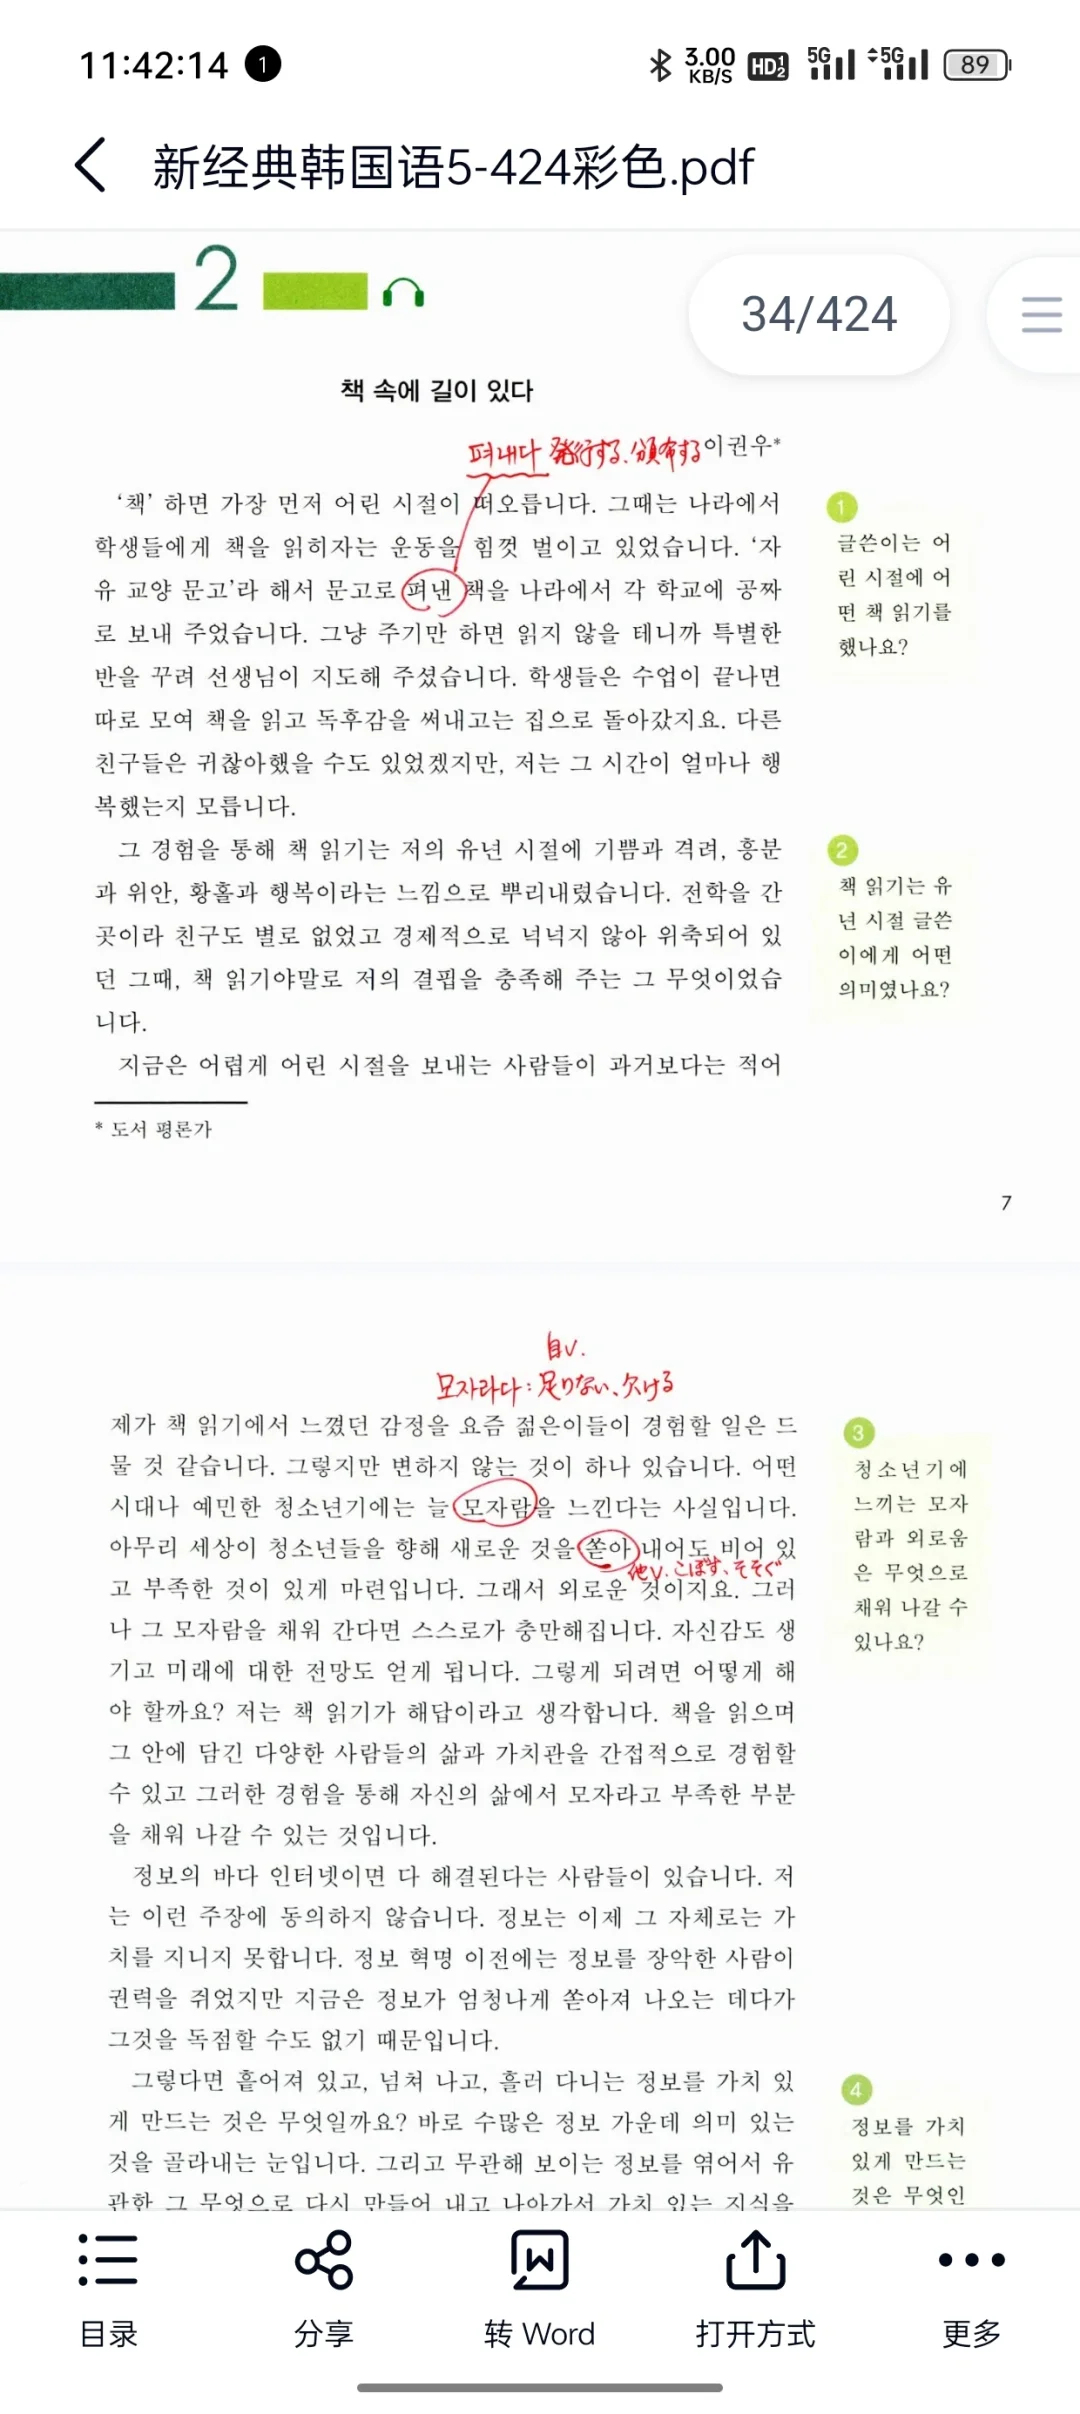 11:42:14 1 3.00 KB/S HD 1 2 5G 5G 89
新经典韩国语5-424彩色.pdf
2
34/424
책 속에 길이 있다
펴내다 発行する、頒布する 이권우*
‘책’ 하면 가장 먼저 어린 시절이 떠오릅니다. 그때는 나라에서
학생들에게 책을 읽히자는 운동을 힘껏 벌이고 있었습니다. ‘자
유 교양 문고’라 해서 문고로 펴낸 책을 나라에서 각 학교에 공짜
로 보내 주었습니다. 그냥 주기만 하면 읽지 않을 테니까 특별한
반을 꾸려 선생님이 지도해 주셨습니다. 학생들은 수업이 끝나면
따로 모여 책을 읽고 독후감을 써내고는 집으로 돌아갔지요. 다른
친구들은 귀찮아했을 수도 있었겠지만, 저는 그 시간이 얼마나 행
복했는지 모릅니다.
1
글쓴이는 어
린 시절에 어
떤 책 읽기를
했나요?
그 경험을 통해 책 읽기는 저의 유년 시절에 기쁨과 격려, 흥분
과 위안, 황홀과 행복이라는 느낌으로 뿌리내렸습니다. 전학을 간
곳이라 친구도 별로 없었고 경제적으로 넉넉지 않아 위축되어 있
던 그때, 책 읽기야말로 저의 결핍을 충족해 주는 그 무엇이었습
니다.
2
책 읽기는 유
년 시절 글쓴
이에게 어떤
의미였나요?
지금은 어렵게 어린 시절을 보내는 사람들이 과거보다는 적어
* 도서 평론가
7
自V.
모자라다 : 足りない、欠ける
제가 책 읽기에서 느꼈던 감정을 요즘 젊은이들이 경험할 일은 드
물 것 같습니다. 그렇지만 변하지 않는 것이 하나 있습니다. 어떤
시대나 예민한 청소년기에는 늘 모자람을 느낀다는 사실입니다.
아무리 세상이 청소년들을 향해 새로운 것을 쏟아 내어도 비어 있
他V. こぼす、そそぐ
고 부족한 것이 있게 마련입니다. 그래서 외로운 것이지요. 그러
나 그 모자람을 채워 간다면 스스로가 충만해집니다. 자신감도 생
기고 미래에 대한 전망도 얻게 됩니다. 그렇게 되려면 어떻게 해
야 할까요? 저는 책 읽기가 해답이라고 생각합니다. 책을 읽으며
그 안에 담긴 다양한 사람들의 삶과 가치관을 간접적으로 경험할
수 있고 그러한 경험을 통해 자신의 삶에서 모자라고 부족한 부분
을 채워 나갈 수 있는 것입니다.
3
청소년기에
느끼는 모자
람과 외로움
은 무엇으로
채워 나갈 수
있나요?
정보의 바다 인터넷이면 다 해결된다는 사람들이 있습니다. 저
는 이런 주장에 동의하지 않습니다. 정보는 이제 그 자체로는 가
치를 지니지 못합니다. 정보 혁명 이전에는 정보를 장악한 사람이
권력을 쥐었지만 지금은 정보가 엄청나게 쏟아져 나오는 데다가
그것을 독점할 수도 없기 때문입니다.
그렇다면 흩어져 있고, 넘쳐 나고, 흘러 다니는 정보를 가치 있
게 만드는 것은 무엇일까요? 바로 수많은 정보 가운데 의미 있는
것을 골라내는 눈입니다. 그리고 무관해 보이는 정보를 엮어서 유
관한 그 무엇으로 다시 만들어 내고 나아가서 가치 있는 지식을
4
정보를 가치
있게 만드는
것은 무엇인
目录
分享
转 Word
打开方式
更多